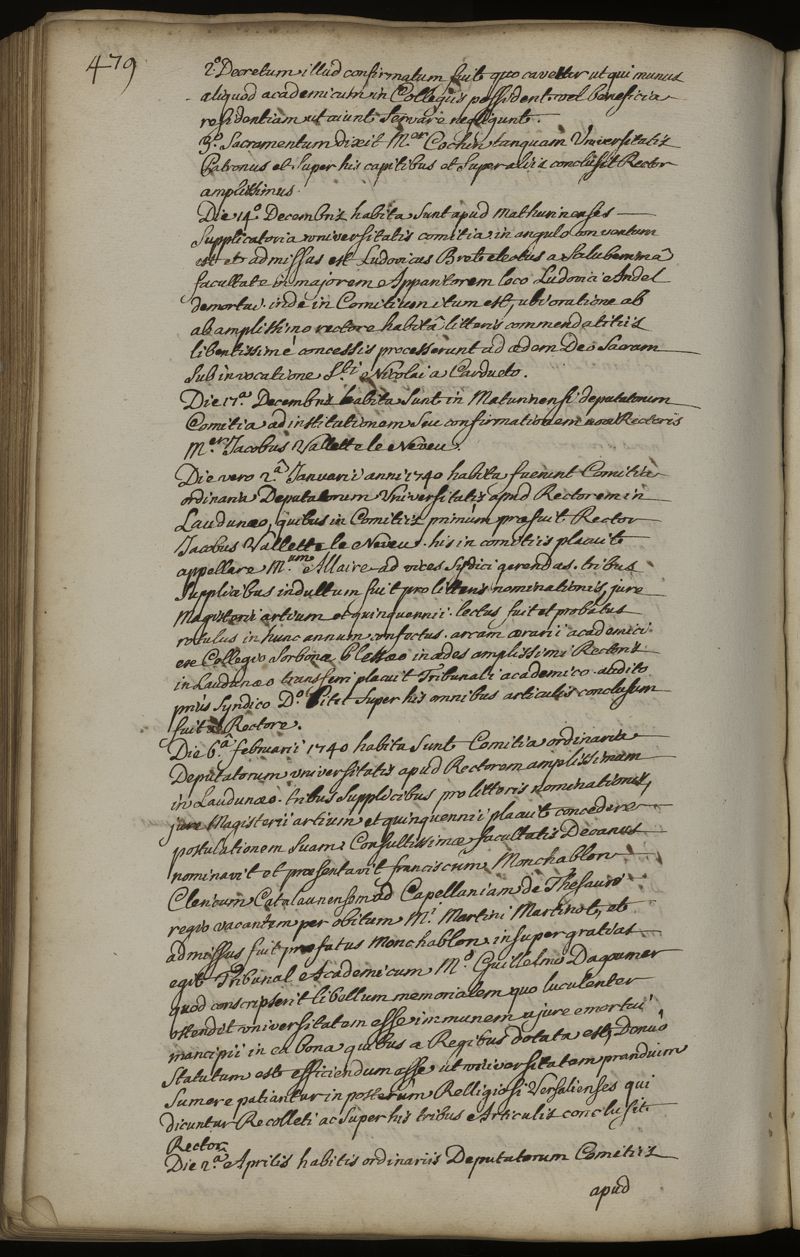 479
2.º Decretum illud confirmatum fuit quo cavetur ut qui munus
aliquod academicum in Collegiis possident vel beneficia
residentiam ut aiunt servare negligunt.
3.º Sacramentum dixit M.er Cochin tanquam Universitatis
Patronus et super his capitibus et super aliis conclusit Rector
amplissimus.
Die 14.º Decembris habita sunt apud Mathurinenses
Supplicatoria universitatis comitia in angulo conventum
est et admissus est Ludovicus Bret electus a Saluberrimâ
facultate in majorem Apparitorem loco Ludovici Andel
demortui. inde in Comitium itum est, ubi oratione ab
ab amplissimo rectore habitâ litteris commendatitiis
libentissimé concessis processerunt ad ædem Deo Sacram
sub invocatione S.ti Nicolai a Cardueto.
Die 17.a Decembris habita sunt in Maturinensi deputatorum
Comitia ad institutionem seu confirmationem novi Rectoris
M.er Jacobus Vallette le Neveu.
Die vero 2.â Januarii anni 1740 habita fuerunt Comitia
ordinaria Deputatorum Universitatis apud Rectorem in
Laudunæo, quibus in Comitiis primúm præfuit Rector
Jacobus Vallette le Neveu. his in comitiis placuit
appellare M.um Allaire ad vices Sijdici gerendas. tribus
Supplicibus indultum fuit pro litteris nominationis, jure
Magisterii artium et quinquennii. lectus fuit et probatus
rotulus in hunc annum confectus. arcam ærarii academici
ex Collegio Sorbonæ Plessæo in ædes amplissimi Rectoris
in Laudunæo transferri placuit Tribunali academico. audito
priùs Syndico D.º Pitit super his omnibus articulis conclusum
fuit a Rectore.
Die 6.â februarii 1740 habita sunt Comitia ordinaria
Deputatorum universitatis apud Rectorem amplissimum
in Laudunæo. tribus supplicibus pro litteris nominationis,
jure Magisterii artium et quinquennii placuit concedere
postulationem suam. Consultissimæ facultatis Decanus
nominavit et præsentavit franciscum Monchablon
Clericum Catalaunensem ad Capellaniam de Thesauro
regio vacantem per obitum M.i Martini Martinot, et
admissus fuit præfatus Monchablon. insuper gratias
egit Tribunal Academicum M.º Guillelmo Dagoumer
quod conscripserit libellum memorialem quo luculenter
ostendit universitatem esse immunem a jure emortui
mancipii in ea bona quibus a Regibus dotata est, Denuó
Statutum est efficiendum esse ut universitatem prandium
Sumere patiantur in posterùm Relligiosi Versalienses qui
dicuntur Recolleti ac super his tribus Articulis conclusit
Rector.
Die 2.a Aprilis habitis ordinariis Deputatorum Comitiis
apud